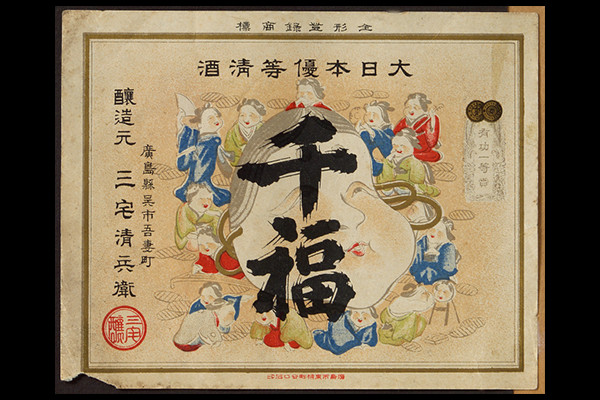 金形登録商標
大日本優等清酒
千福
有功一等賞
廣島縣呉市吾妻町
醸造元 三宅清兵衛
三宅醸